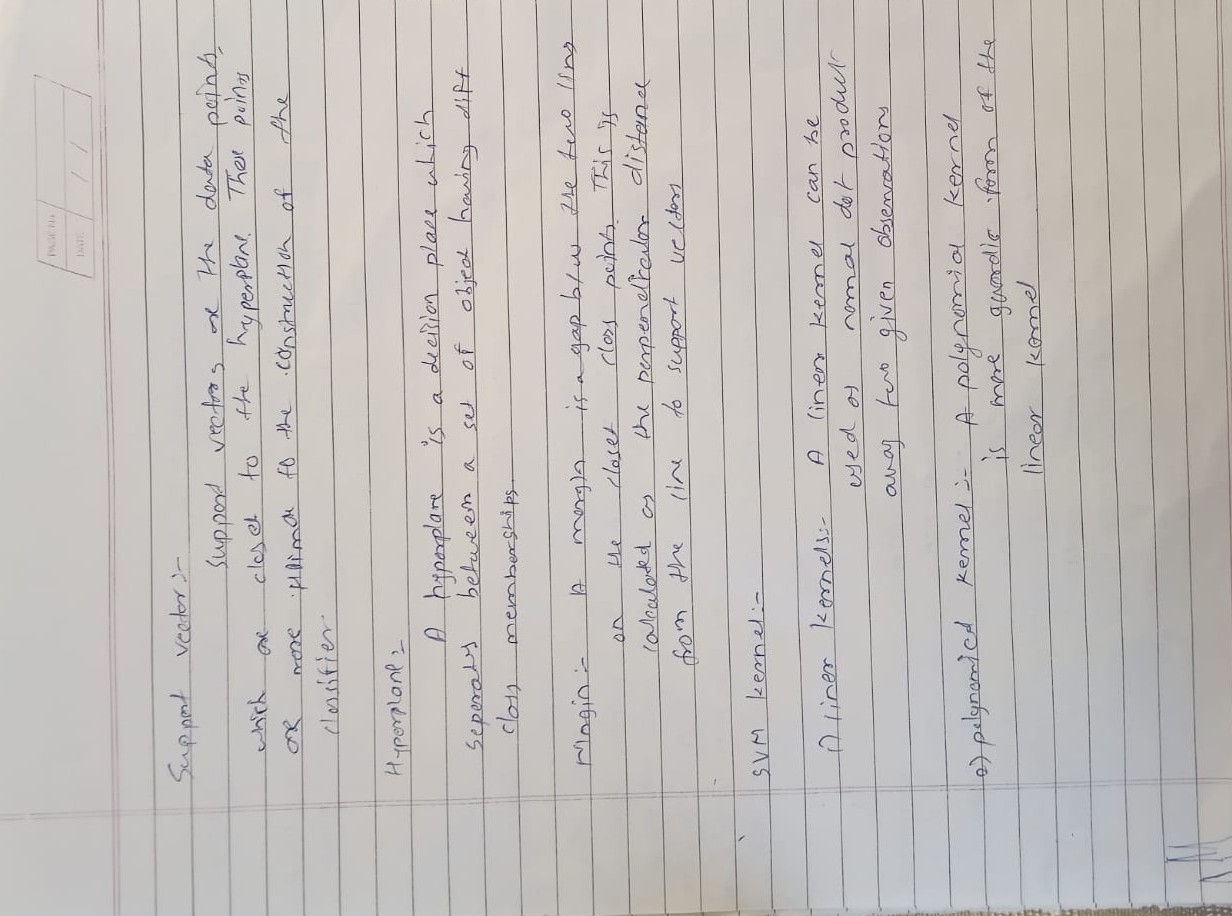 PAGE No.
DATE / /
Support vector :-
Support vectors are the data points,
which are closet to the hyperplane. These points
are more to the construction of the
classifier.
Hyperplane :-
A hyperplane is a decision plane which
seperates between a set of object having diff
class memberships.
Margin :- A margin is a gap b/w the two lines
on the closet class points. This is
calculated as the perpendicular distance
from the line to support vectors
SVM kernel :-
1) liner kernels :- A linear kernel can be
used as normal dot product
two given observations
2) polynomial kernel :- A polynomial kernel
is more form of the
linear kernel